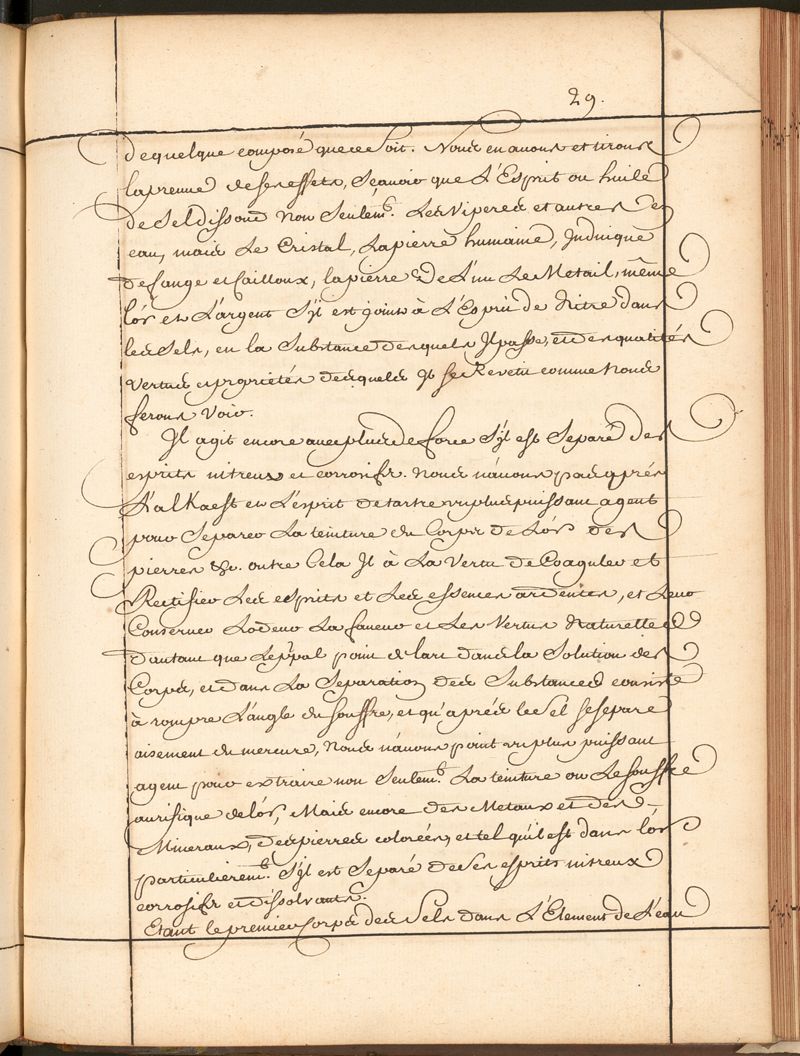 29.
de quelque composé que ce soit. Nous en avons et tirons
la preuve de ses effets, Sçavoir que L'Esprit ou huile
de Sel dissout Non Seulem.t Les Viperes et autres
eau, mais Le Cristal, La pierre humaine, Judaique
de sange et Cailloux, la pierre De L'un Le Metail, même
l'or et L'argent S'yl est joints à L'Esprit de Nitre dans
les Sels, en la Substance desquels Jl passe, et des qualités
vertus et proprietés desquels Jl se Revetit comme Nous
ferons Voir.
Jl agit encore avec plus de force S'yl est Separé des
esprits nitreux et corrosifs. Nous n'avons pas après
L'alKaest et L'esprit de tartre un plus puissant agent
pour Separer La teinture du Corps de L'or des
pierres &c. outre Cela Jl à La Vertu de Coaguler et
Rectifier Les esprits et Les essences ardentes, et Leur
Conserver L'odeur La saveur et Les Vertus Naturelles
d'autant que Le p.pal point de l'art dans la Solution des
Corps, et dans La Separation des Substances consiste
à rompre L'angle du souffre, et qu'après le Sel se separe
aisement du mercure, Nous n'avons point un plus puissant
agent pour extraire non Seulem.t La teinture ou Le souffre
aurifique de l'or, Mais encore des Metaux et des
Mineraux, des pierres colorées, et tel qu'il est dans l'or
particulierem.t S'yl est Separé de Ses esprits nitreux
corrosifs et dissolvants.
Etant le premier Corps des Sels dans L'Element de L'eau